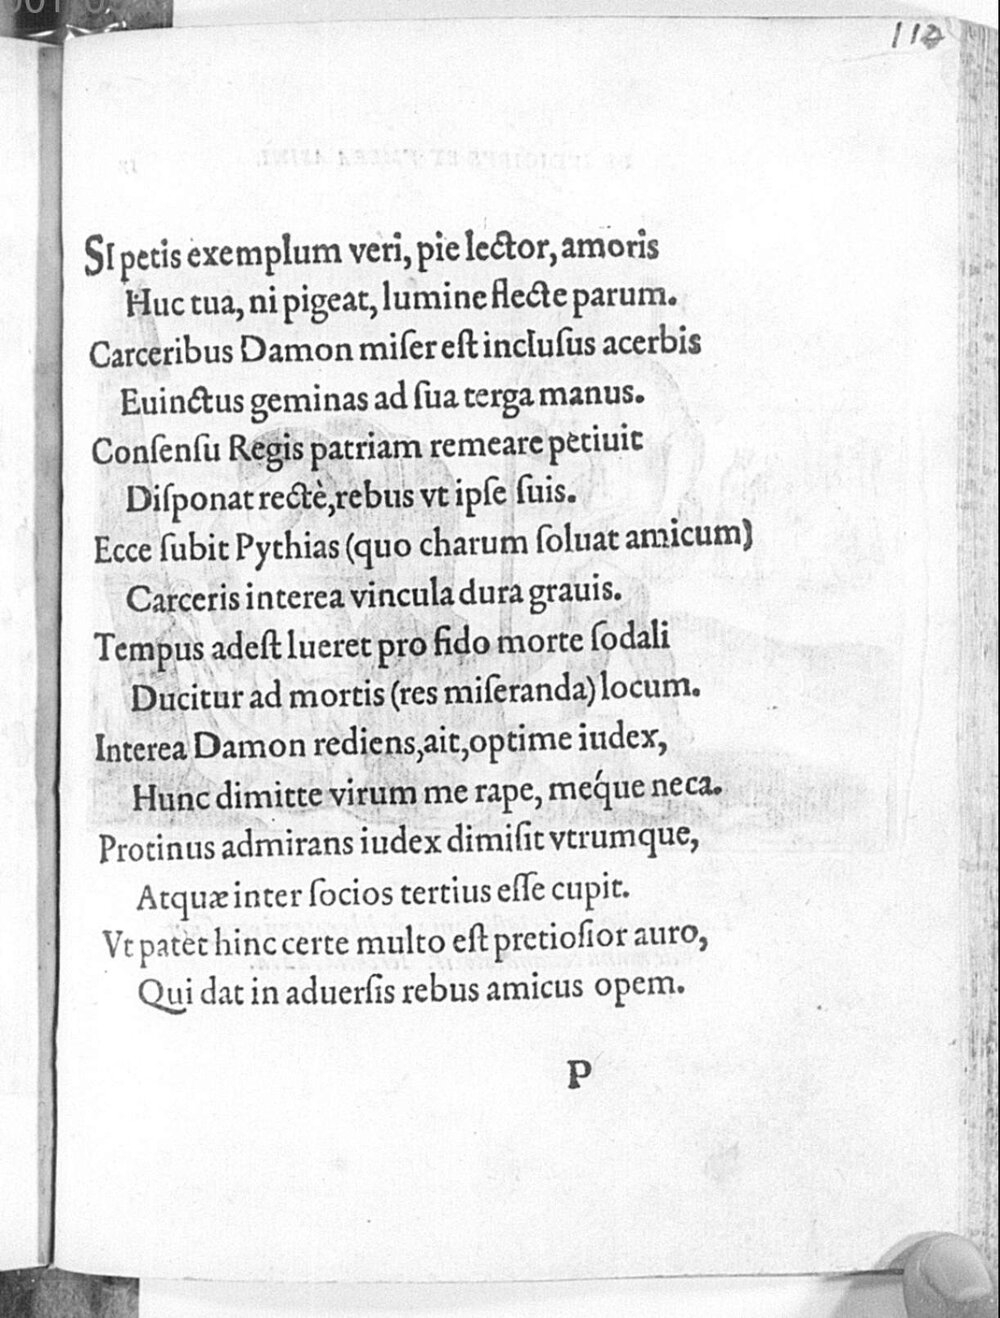 112
SI petis exemplum veri, pie lector, amoris
Huc tua, ni pigeat, lumine flecte parum.
Carceribus Damon miſer eſt incluſus acerbis
Euinctus geminas ad ſua terga manus.
Conſenſu Regis patriam remeare petiuit
Diſponat rectè, rebus vt ipſe ſuis.
Ecce ſubit Pythias (quo charum ſoluat amicum)
Carceris interea vincula dura grauis.
Tempus adeſt lueret pro fido morte ſodali
Ducitur ad mortis (res miſeranda) locum.
Interea Damon rediens, ait, optime iudex,
Hunc dimitte virum me rape, méque neca.
Protinus admirans iudex dimiſit vtrumque,
Atquæ inter ſocios tertius eſſe cupit.
Vt patet hinc certe multo eſt pretioſior auro,
Qui dat in aduerſis rebus amicus opem.
P